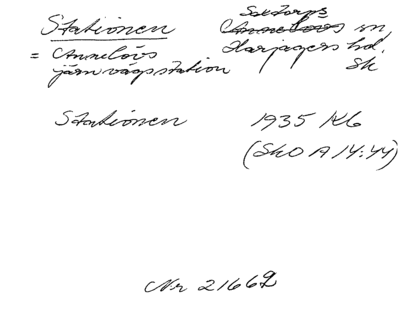 Stationen
= Annelövs
järnvägsstation
Saxtorps
Annelövs sn
Harjagers hd.
Sk
Stationen 1935 Kb
(SkO A 14:44)
Nr 21662